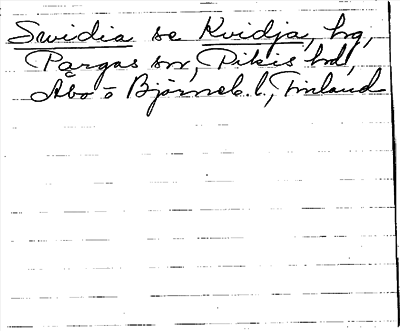 Swidia se Kvidja, hg,
Pargas sn, Pikis hd,
Åbo o Björneb. l., Finland